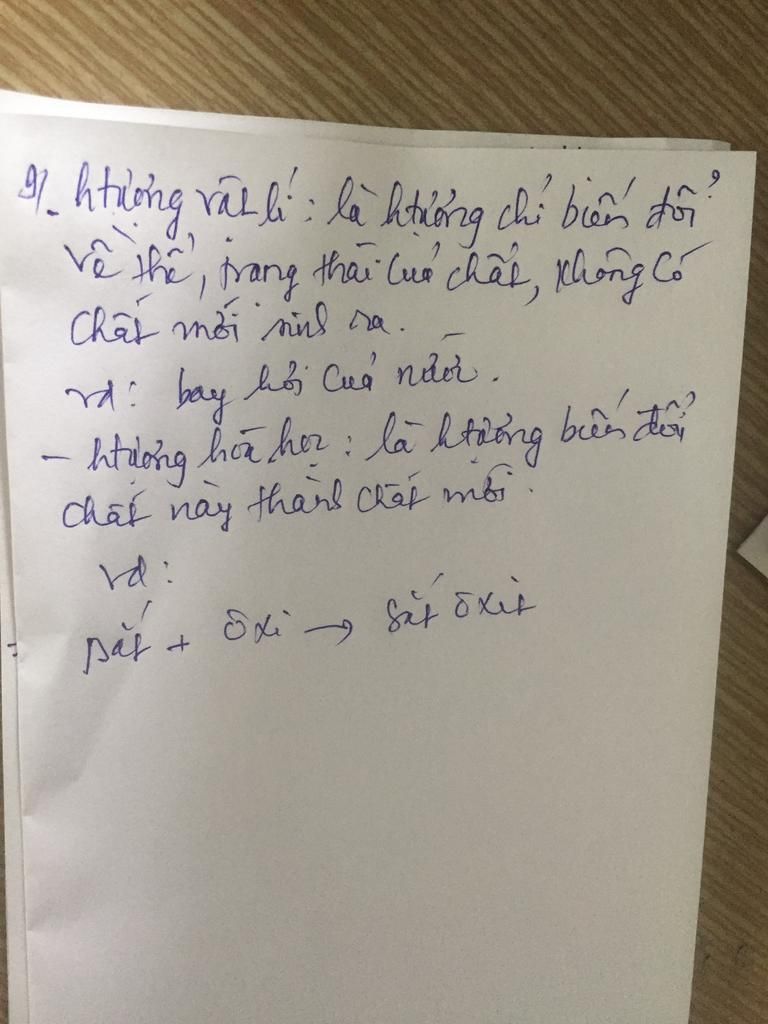 9/- htượng vật lí : là htượng chỉ biến đổi
về thể, trạng thái của chất, không có
chất mới sinh ra.
vd : bay hơi của nước.
- htượng hóa học : là htượng biến đổi
chất này thành chất mới.
vd :
sắt + ôxi → sắt ôxit